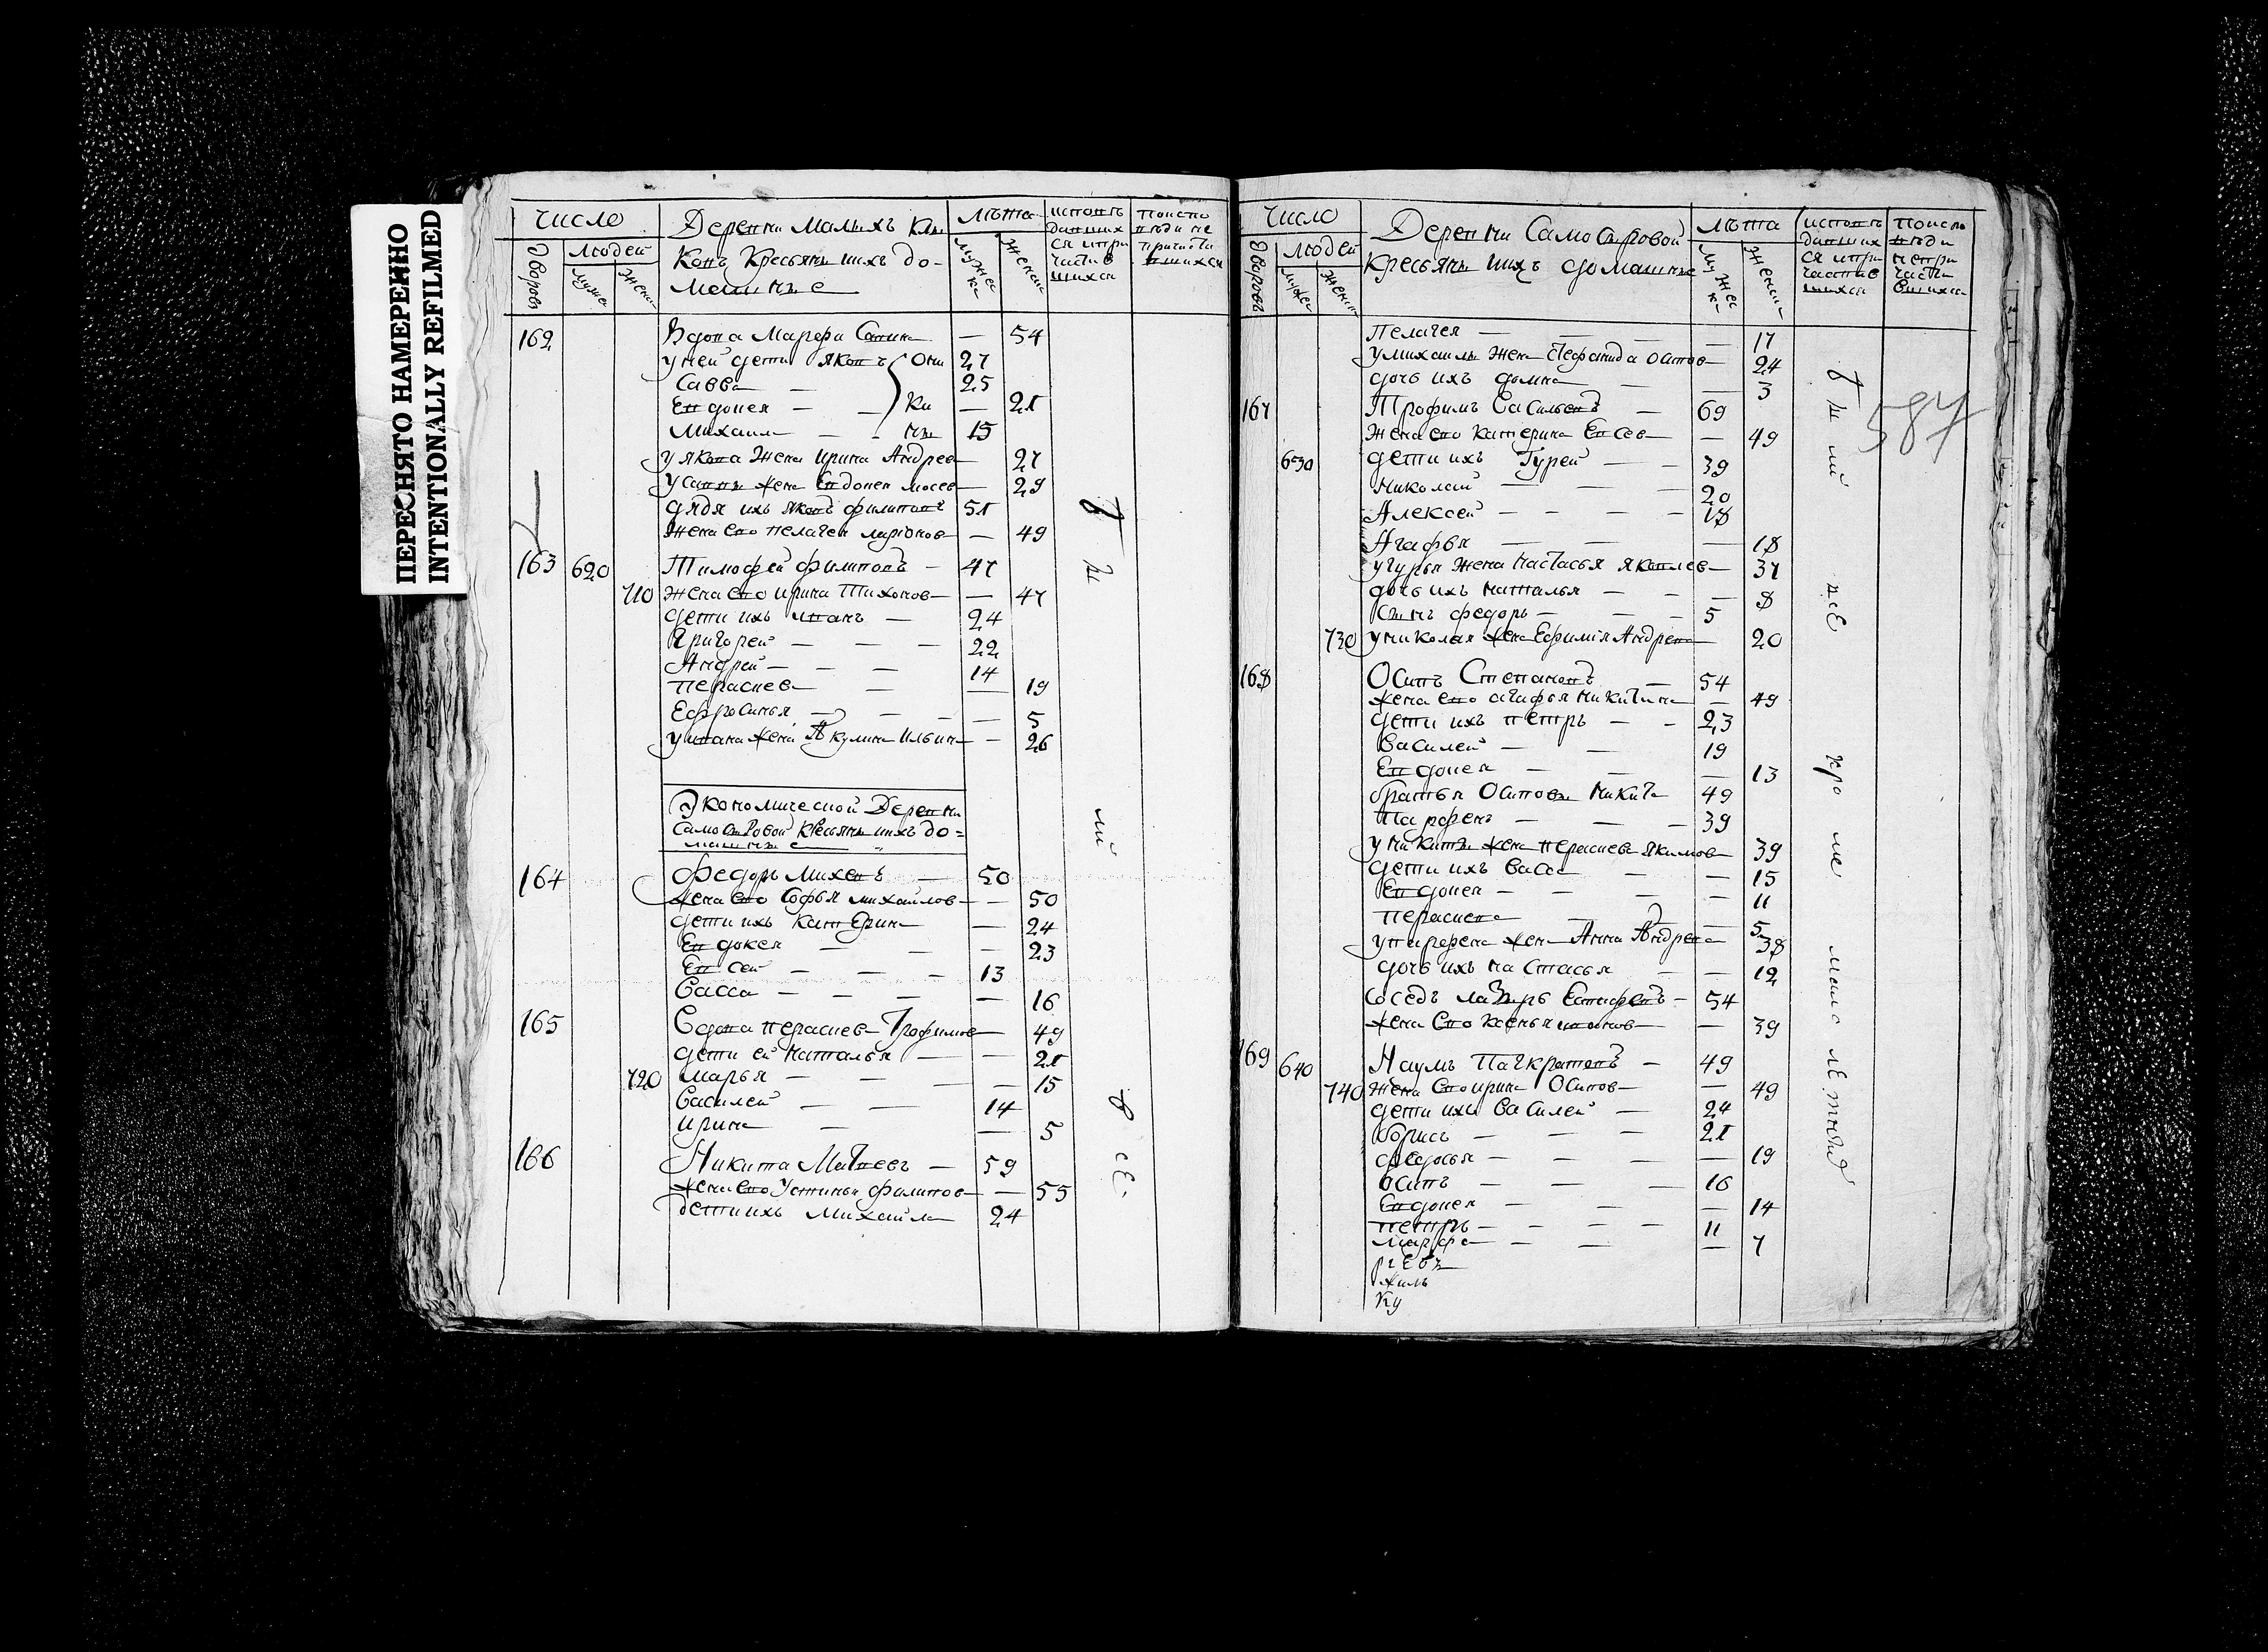 ПЕРЕСНЯТО НАМЕРЕННО
INTENTIONALLY REFILMED
Число
Дворовъ
Людей
Мужес
Женс
Деревни Малыхъ Клы
ковъ Крестьяны ихъ до-
машные
Лѣта
Мужес
ка
Женска
исповѣ
давших
ся ипри
частив
шихся
поиспо
вѣди не
причасти
вшихся
162 Вдова Марфа Савина — 54
у ней дети Яковъ 27
Савва — 25
Евдокея — — 21
Михаила — — 15
у якова жена ирина Андреева 27
у саввы жена Евдокея мосева 29
дядя ихъ яковъ филиповъ 51
жена ево пелагея ларионова — 49
163 620 Тимофей филиповъ — 47
710 жена ево ирина Тихонова — 47
дети ихъ иванъ — 24
Григорей — — — 22
Андрей — — — 14
пераскева — — 19
Ефросинья — — — — 5
у ивана жена Акулина ильина — 26
Экономической Деревни
Самосыровой крестьяны ихъ до=
машные
164 федоръ михевъ — 50
жена ево Софья михайлова — — 50
дети ихъ катерина — 24
Евдокея — — — 23
Евсей — — — 13
Васса — — — — 16
165 Вдова пераскева Трофимова 49
дети ей наталья — — 21
720 марья — — — — 15
Василей — — 14
ирина — — 5
166 Никита Матвеевъ — 59
жена ево Устинья филипова — 55
дети ихъ михайла 24
Число
Дворовъ
Людей
мужес
Женск
Деревни Самосыровой
крестьяны ихъ домашные
Лѣта
Мужес
ка
Женска
исповѣ
давших
ся ипри
частив
шихся
поиспо
вѣди
непри
части
вшихся
587
пелагея — — — 17
у михаилы жена стефанида осипова 24
дочь ихъ домна — — 3
167 Трофимъ Васильевъ — 69
жена ево катерина Евсева — 49
630 дети ихъ Гурей — — 39
николай — — — 20
Алексей — — — — 18
Агафья — — — 18
у гурья жена настасья яковлева 37
дочь ихъ наталья — — — 8
сынъ федоръ — — — 5
730 у николая жена Ефимія Андреева 20
168 Осипъ Степановъ — 54
жена ево агафья никитина — 49
дети ихъ петръ — — 23
Василей — — 19
Евдокея — — — 13
братья Осиповы никита 49
Парфенъ — — — 39
у никиты жена пераскева якимова 39
дети ихъ васса — — 15
Евдокея — — — — 11
пераскева — — — 5
у парфена жена Анна Андреева 38
дочь ихъ настасья — — 12
соседъ лазырь Евстафевъ — 54
жена ево ксенья иванова — 39
169 640 Наумъ Панкратовъ — 49
740 жена ево ирина Осипова — 49
дети ихъ Василей — 24
борисъ — — — 21
федосья — — — — 19
осипъ — — — 16
Евдокея — — — 14
петръ — — — — 11
марфа — — — — 7
кро ме мало летныхъ